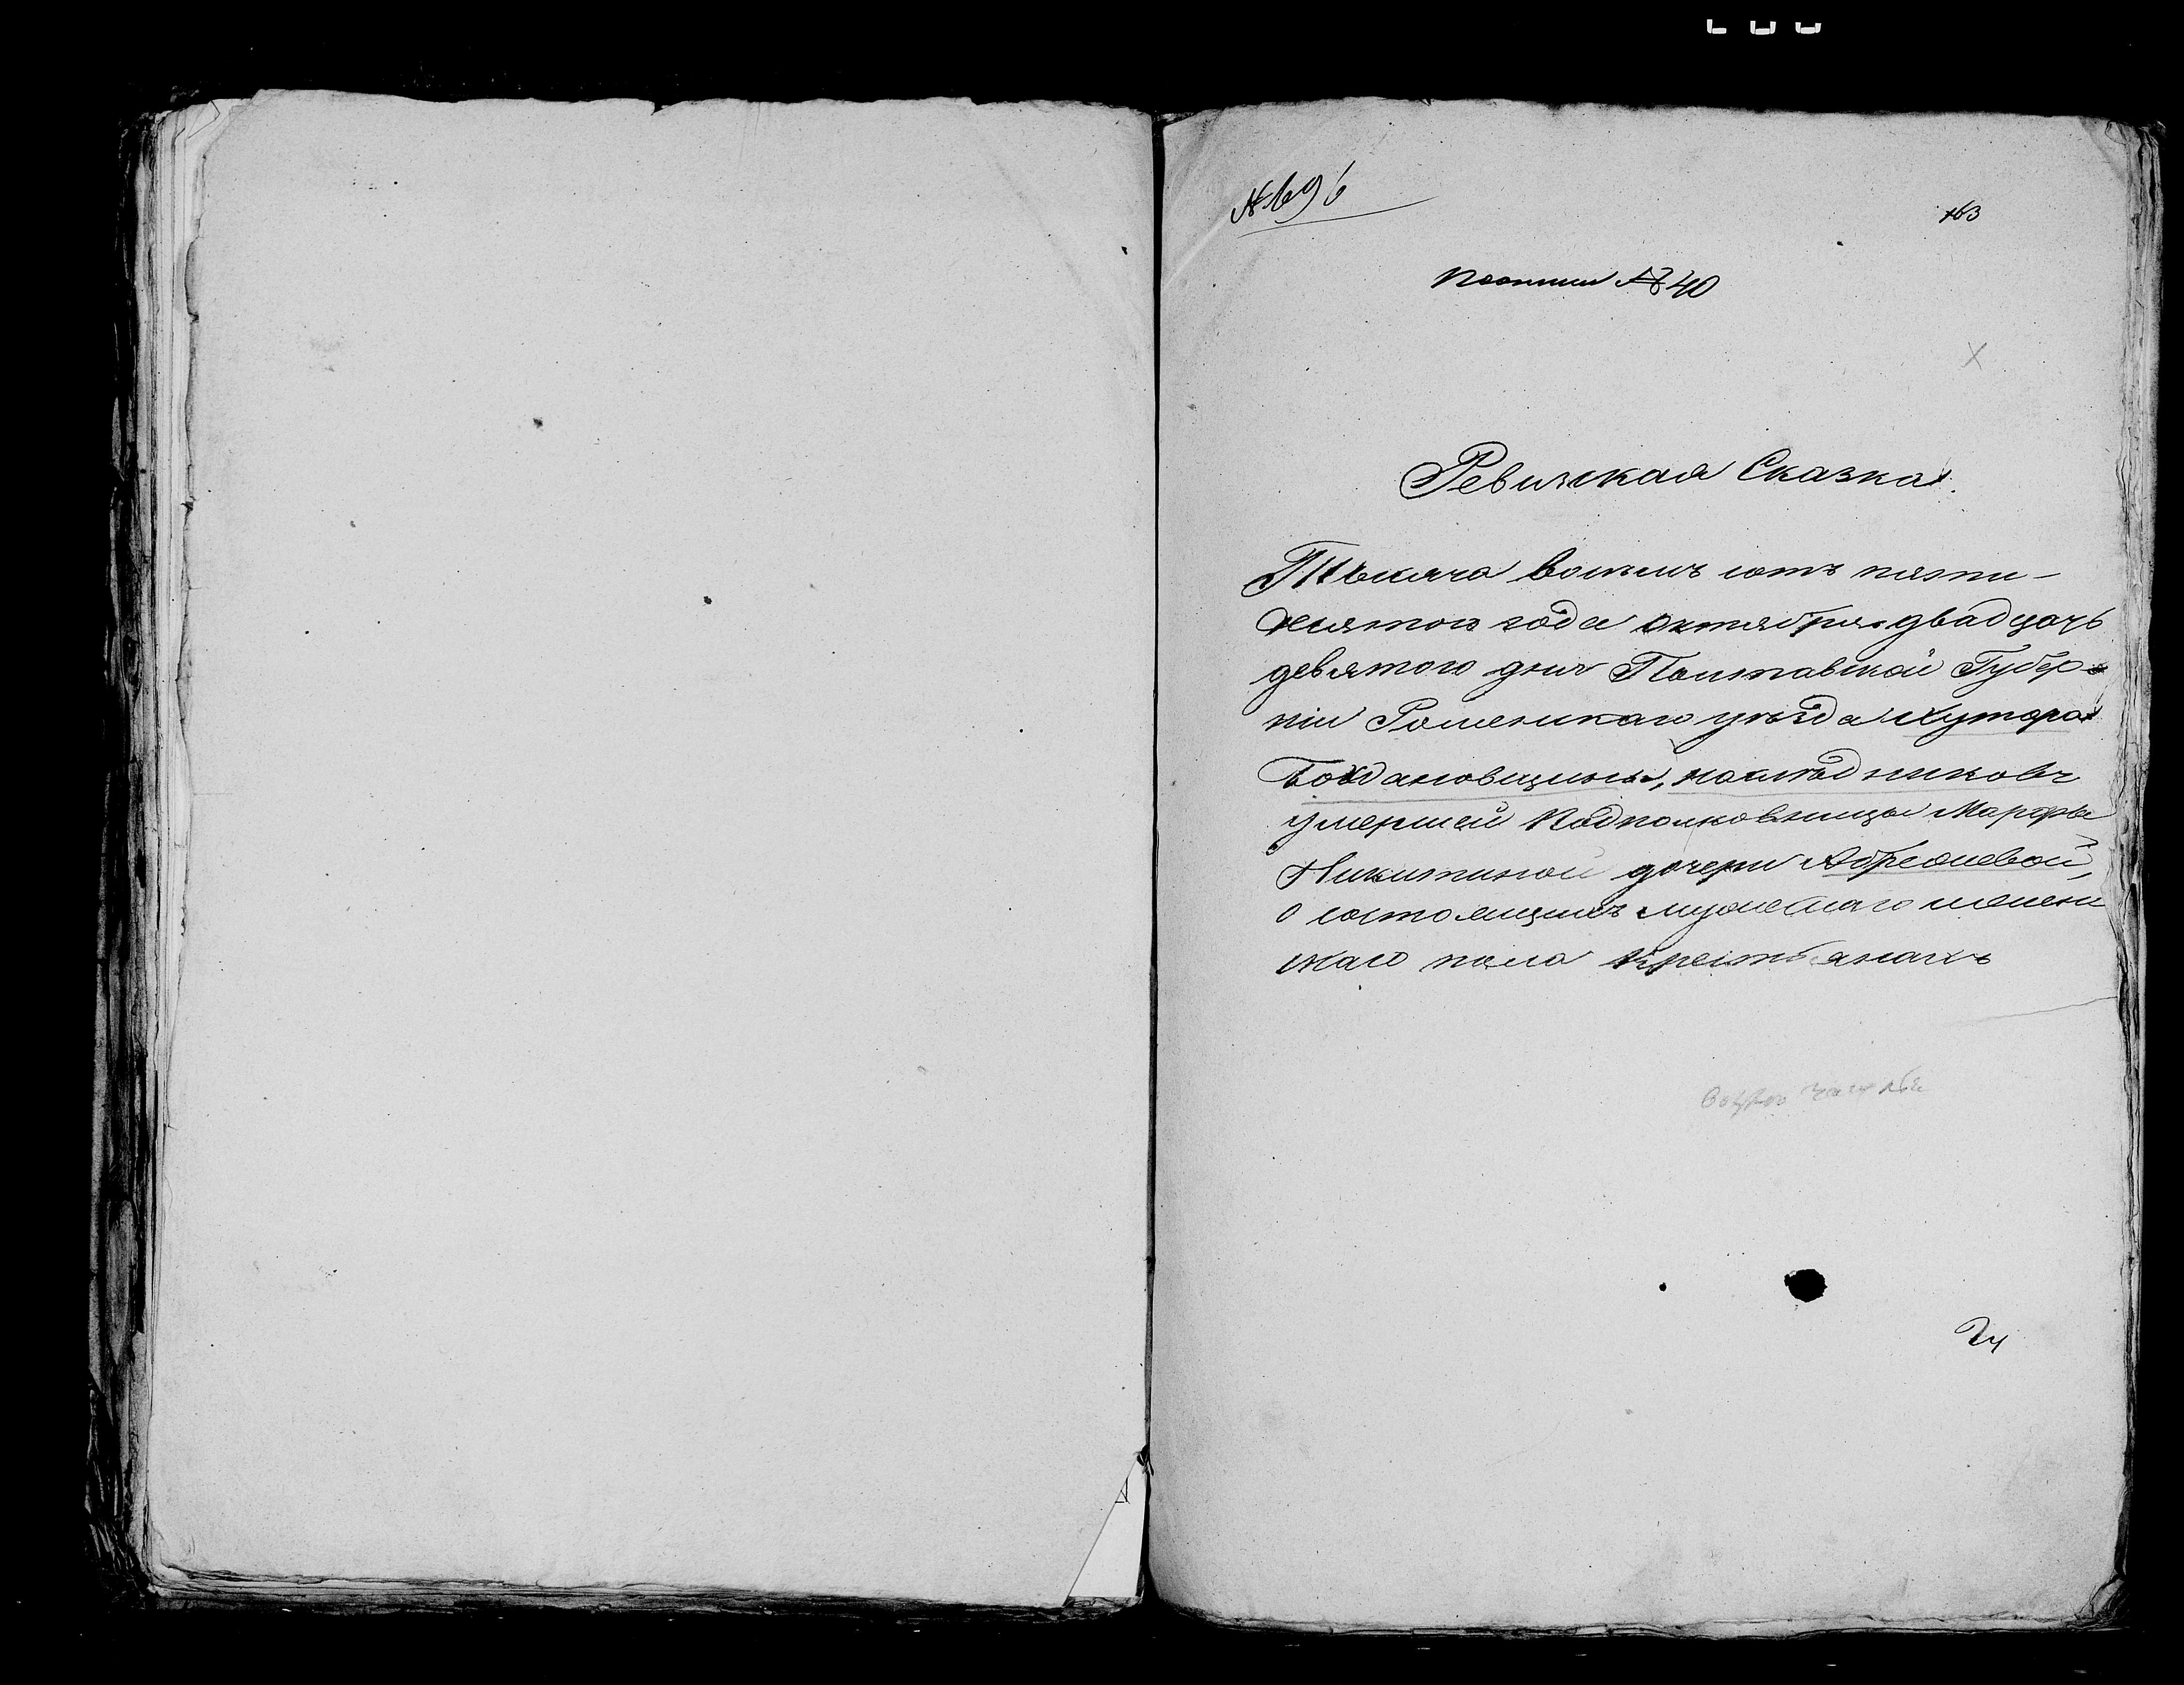 № 696
163
№ 40
Ревизская Сказка.
Тысяча восемь сотъ пять-
десятого года Октября двадцать
девятого дня Полтавской Губер-
ніи Роменскаго уѣзда хутора
Богдановщины, наслѣдниковъ
умершей Подполковницы Марфы
Никитиной дочери
о состоящихъ мужескаго и женс
скаго пола крестьянахъ